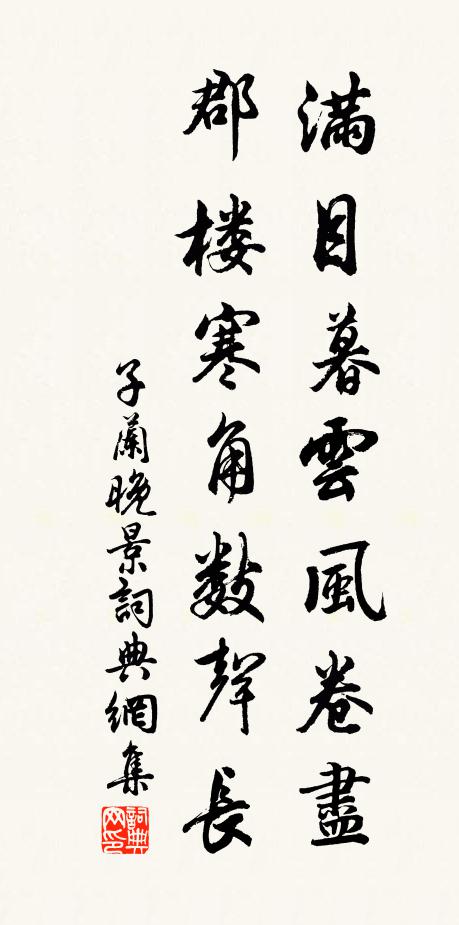 滿目暮雲風卷盡
郡楼寒角數聲長
子蘭晚景詞典網集
詞典
网印